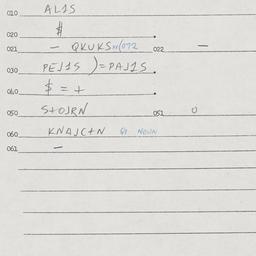 010 ALIS
020 $
021 - QKUKS 022 -
030 PEJIS ) = PAJIS
040 $ = +
050 S+OJRN 051 0
060 KNAJC+N
061 -